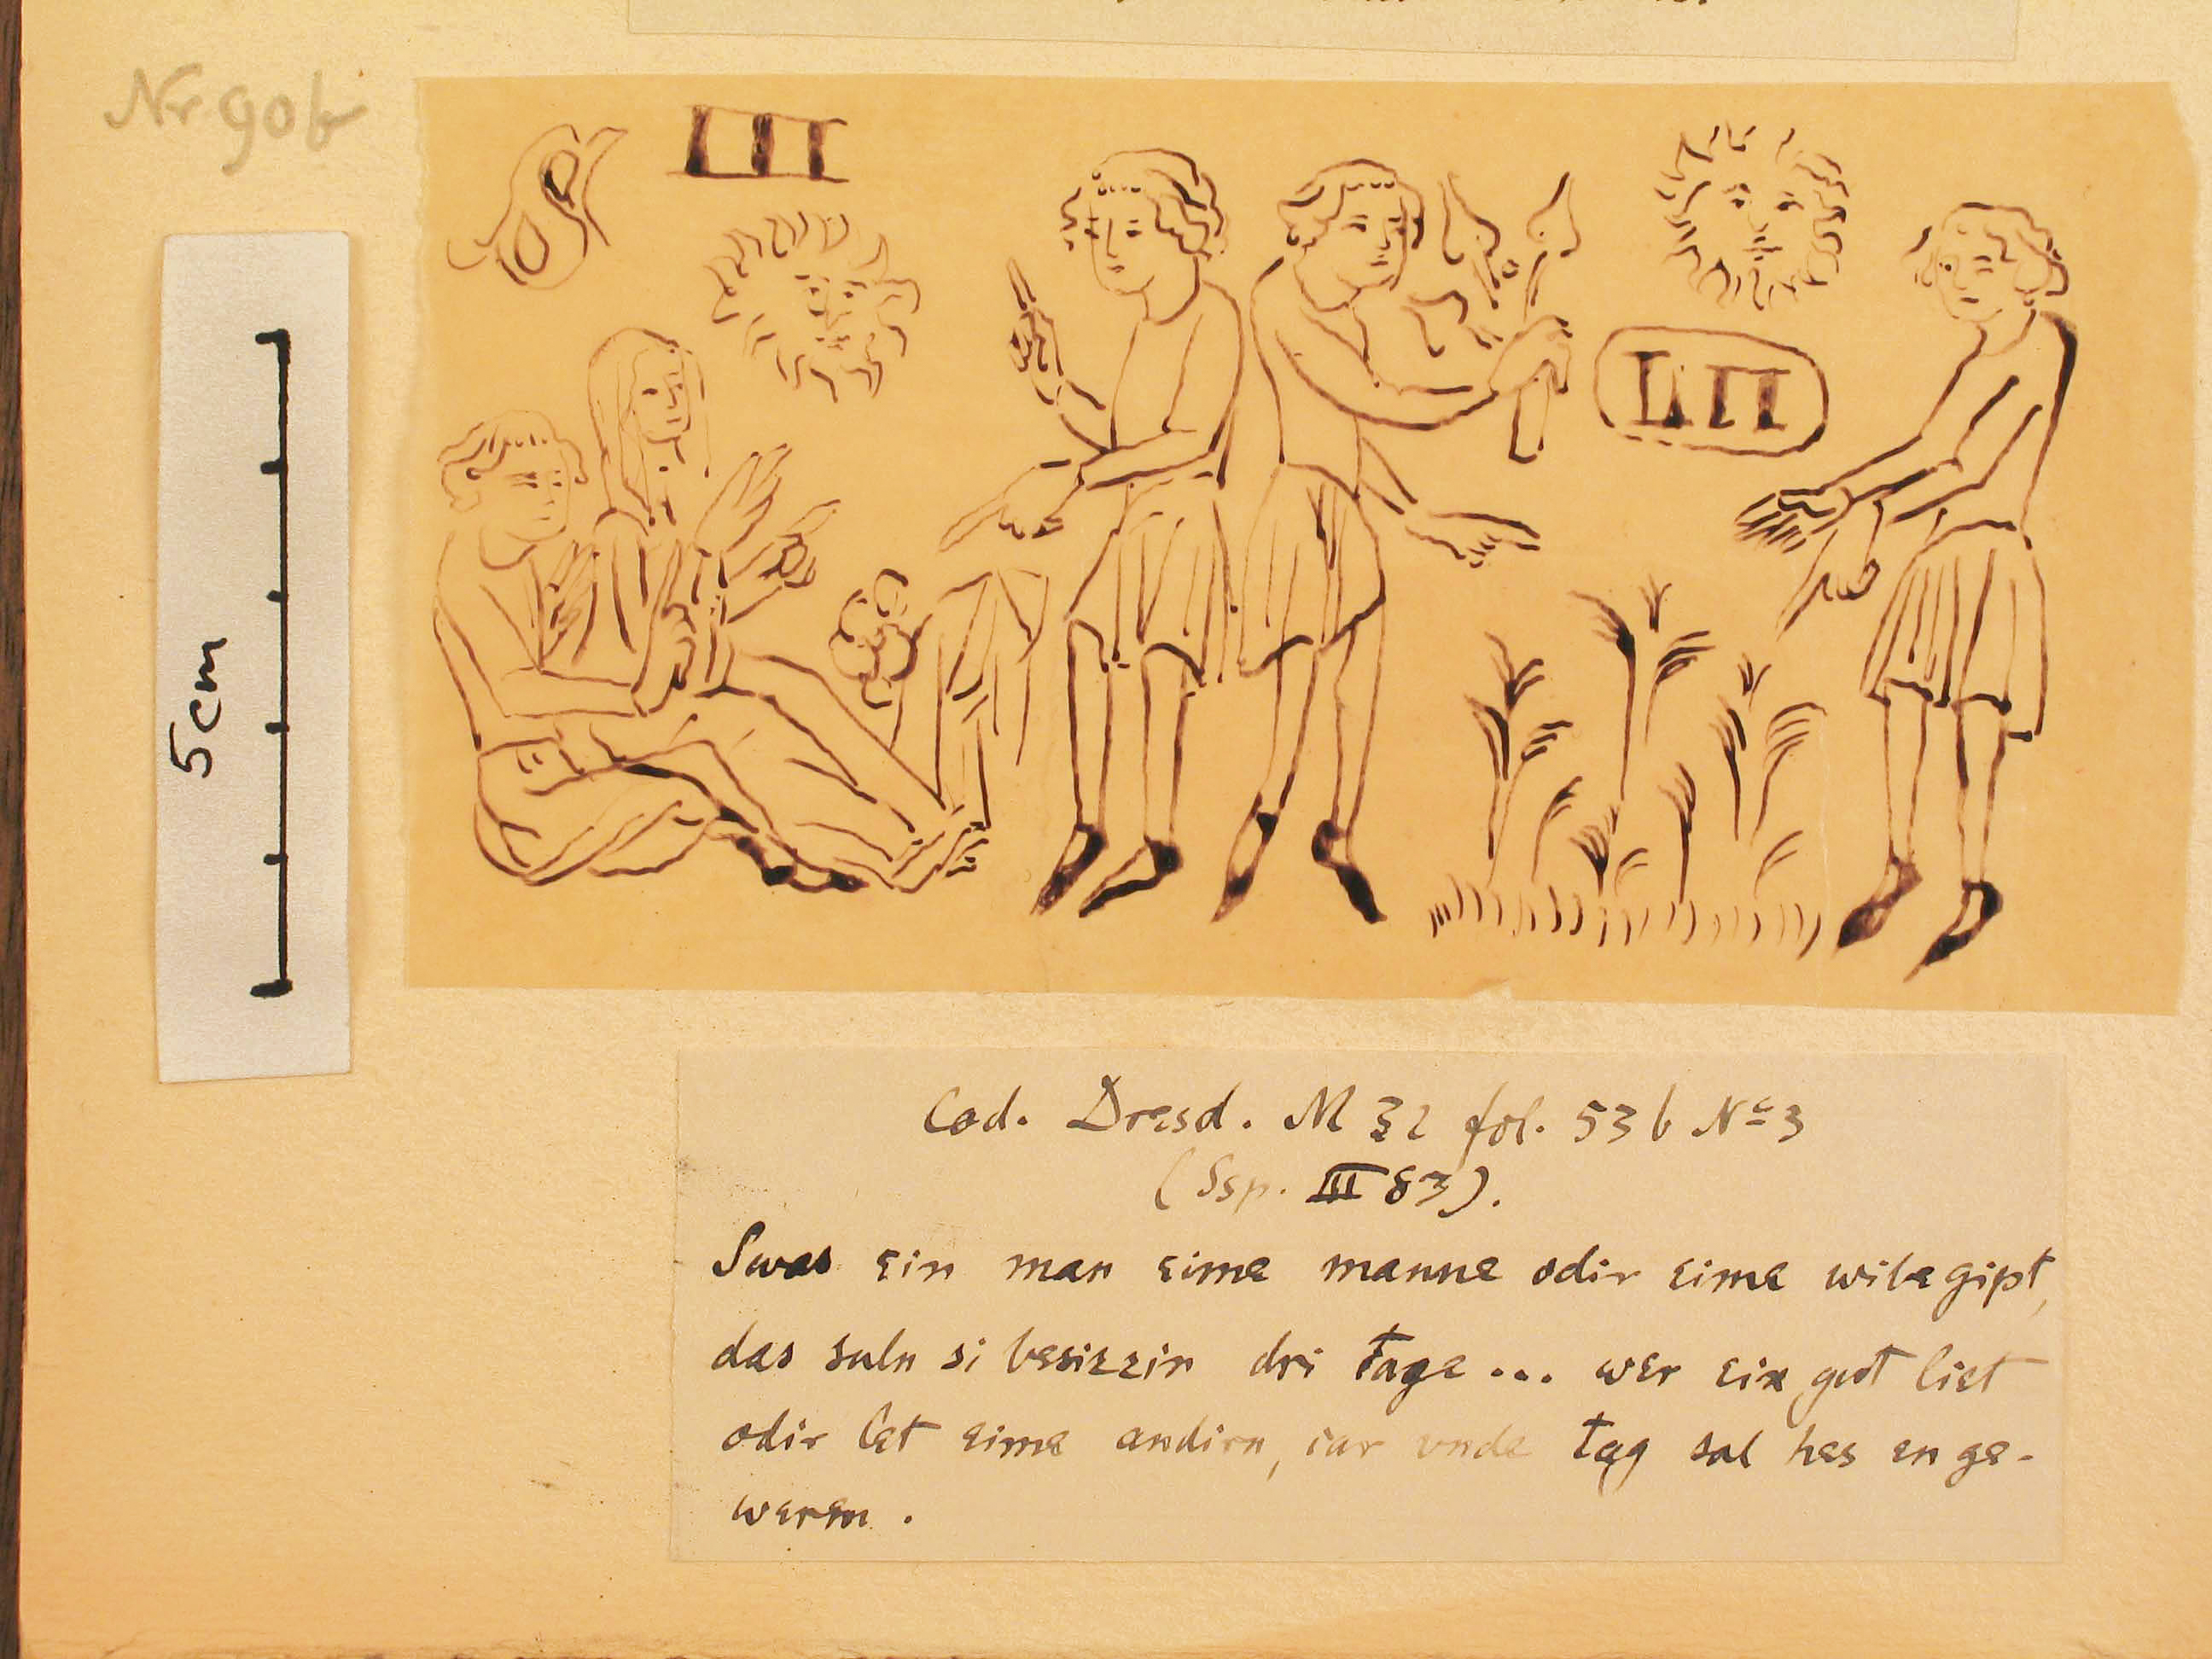 Nr 90b
III
III
5cm
Cod. Dresd. M 32 fol. 53 b No 3
(Ssp. III 83).
Swas ein man eime manne odir eime wibe gipt,
das suln si besizzin dri tage... wer ein gut liet
odir let eime andirn, iar vnde tag sal hes en ge-
weren.